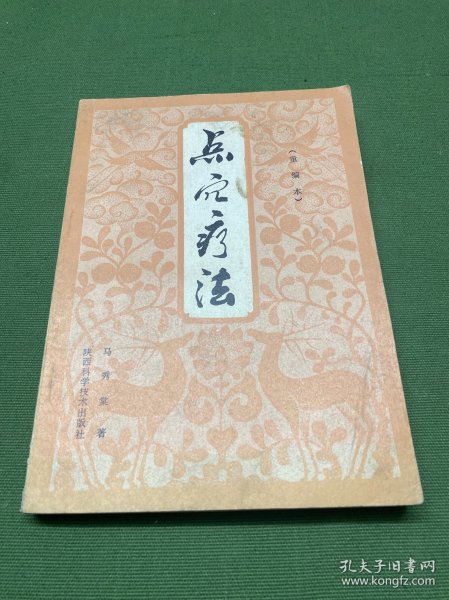 点穴疗法
（重编本）
马秀棠 著
陕西科学技术出版社
孔夫子旧书网
www.kongfz.com